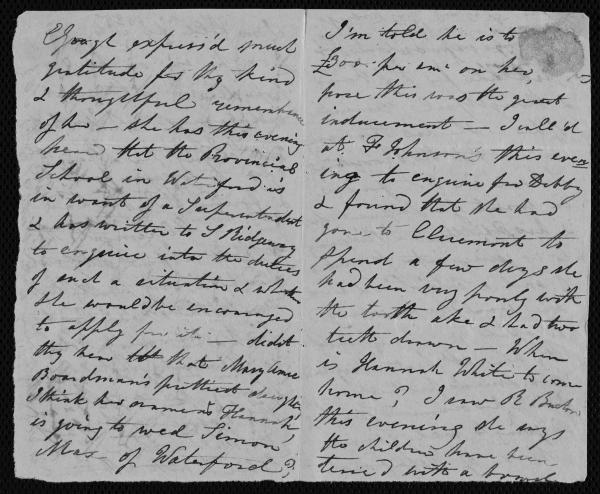 E Gough express'd much
gratitude for thy kind
& thoughtful remembrance
of her – she has this evening
heard that the Provincial
School in Waterford is
in want of a Superintendent
& has written to S Ridgway
to enquire into the duties
of such a situation & whether
she would be encouraged
to apply for it – didst
thy hear that Mary Anne
Boardman's prettiest daughter
I think her name is Hannah,
is going to wed Simon
Mas- of Waterford?
I'm told he is to
£300 per an: on her,
pose this was the great
inducement – I call'd
at F Johnson's this even
ing to enquire for Debby
& found that she had
gone to Cluemont to
spend a few days she
had been very poorly with
the tooth ake & had two
teeth drawn – When
is Hannah White to come
home? I saw R
this evening she says
the children have been
with a bowel